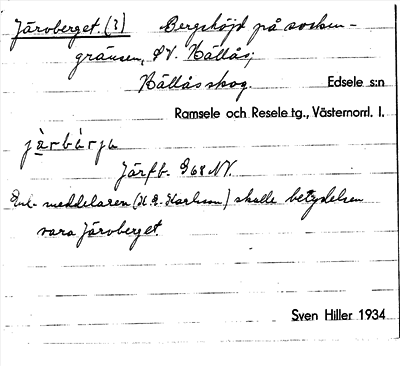 Järvberget. (?) Bergshöjd på socken-
gränsen, SV. Hällås;
Hällås skog.
Edsele s:n
Ramsele och Resele tg., Västernorrl. l.
järbärju
Järfb. G68 NV.
Enl. meddelaren (H. E. Karlsson) skulle betydelsen
vara Järvberget.
Sven Hiller 1934